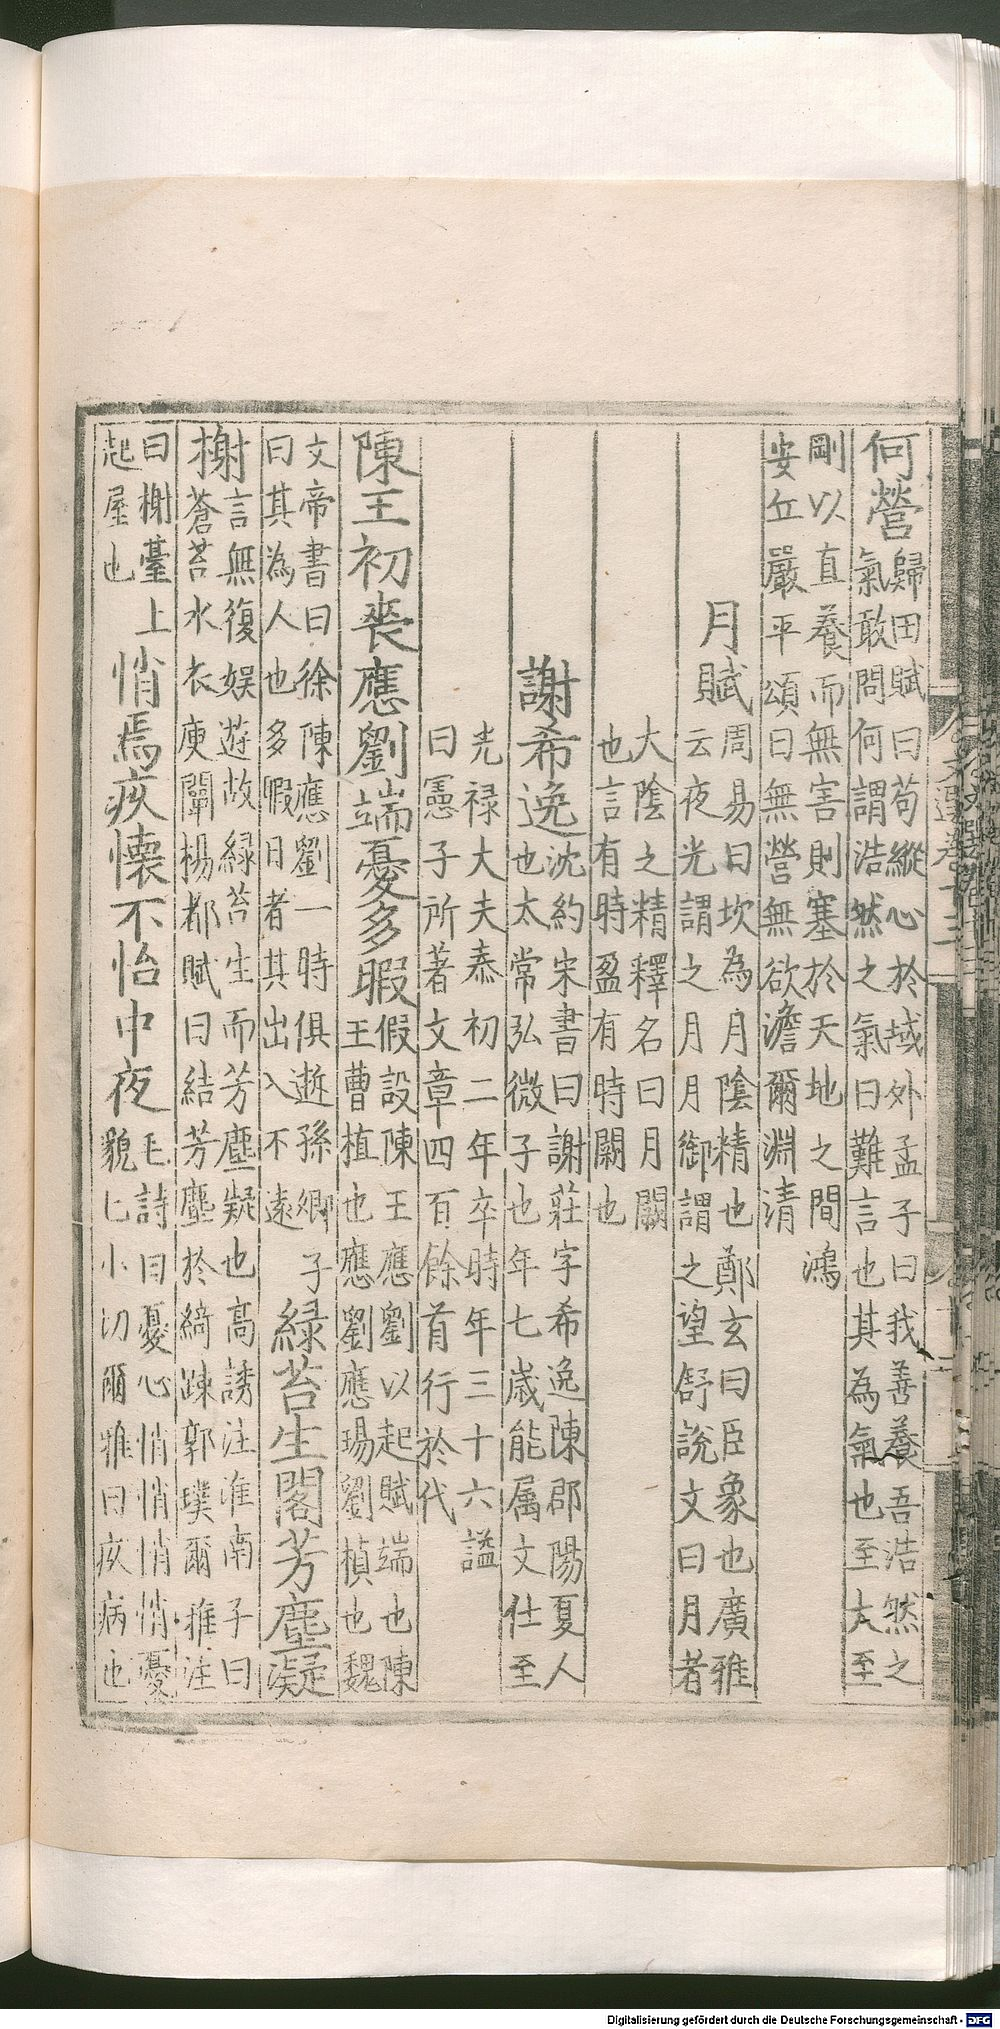 何營歸田賦曰苟縱心於域外孟子曰我善養吾浩然之
氣敢問何謂浩然之氣曰難言也其為氣也至大至
剛以直養而無害則塞於天地之間鴻
安丘嚴平頌曰無營無欲澹爾淵清
月賦周易曰坎為月陰精也鄭玄曰臣象也廣雅
云夜光謂之月月御謂之望舒說文曰月者
大陰之精釋名曰月闕
也言有時盈有時闕也
謝希逸沈約宋書曰謝莊字希逸陳郡陽夏人
也太常弘微子也年七歲能属文仕至
光禄大夫泰初二年卒時年三十六謚
曰憲子所著文章四百餘首行於代
陳王初喪應劉端憂多暇假設陳王應劉以起賦端也陳
王曹植也應劉應瑒劉楨也魏
文帝書曰徐陳應劉一時俱逝孫卿子
曰其為人也多暇日者其出入不遠
緑苔生閣芳塵凝
榭言無復娱遊故緑苔生而芳塵凝也高誘注淮南子曰
蒼苔水衣庾闡楊都賦曰結芳塵於綺踈郭璞爾雅注
曰榭臺上
起屋也
悄焉疚懷不怡中夜毛詩曰憂心悄悄悄悄憂
貌七小切爾雅曰疚病也
文選卷十三
Digitalisierung gefördert durch die Deutsche Forschungsgemeinschaft - DFG